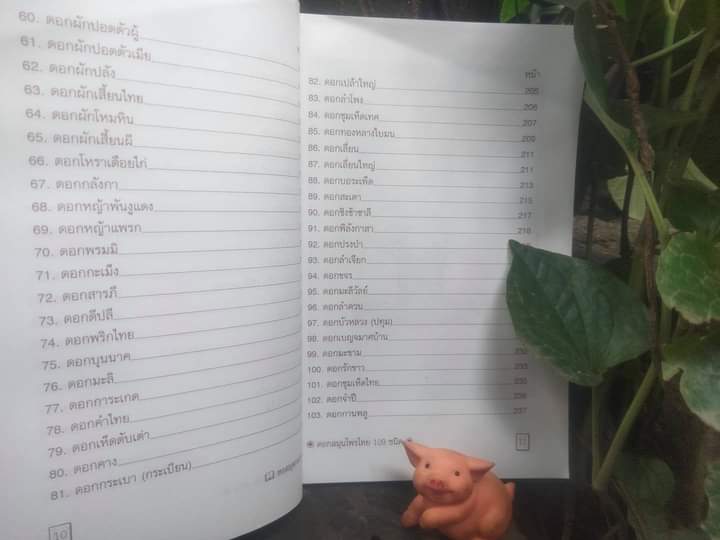 60. ดอกผักปอดตัวผู้
61. ดอกผักปอดตัวเมีย
62. ดอกผักปลัง
63. ดอกผักเสี้ยนไทย
64. ดอกผักโหมหิน
65. ดอกผักเสี้ยนผี
66. ดอกโหราเดือยไก่
67. ดอกกลังกา
68. ดอกหญ้าพันงูแดง
69. ดอกหญ้าแพรก
70. ดอกพรมมิ
71. ดอกกะเม็ง
72. ดอกสารภี
73. ดอกดีปลี
74. ดอกพริกไทย
75. ดอกบุนนาค
76. ดอกมะลิ
77. ดอกการะเกด
78. ดอกคำไทย
79. ดอกเห็ดตับเต่า
80. ดอกคาง
81. ดอกกระเบา (กระเบียน)
10
หน้า
82. ดอกเปล้าใหญ่ 205
83. ดอกลำโพง 206
84. ดอกชุมเห็ดเทศ 207
85. ดอกทองหลางใบมน 209
86. ดอกเลี่ยน 211
87. ดอกเลี่ยนใหญ่ 211
88. ดอกบอระเพ็ด 213
89. ดอกสะเดา 215
90. ดอกชิงช้าชาลี 217
91. ดอกพิลังกาสา 218
92. ดอกปรงป่า
93. ดอกลำเจียก
94. ดอกขจร
95. ดอกมะลิวัลย์
96. ดอกลำดวน
97. ดอกบัวหลวง (ปทุม)
98. ดอกเบญจมาศบ้าน
99. ดอกมะขาม
100. ดอกรักขาว 233
101. ดอกชุมเห็ดไทย 235
102. ดอกจำปี 236
103. ดอกกานพลู 237
ดอกสมุนไพรไทย 109 ชนิด 11